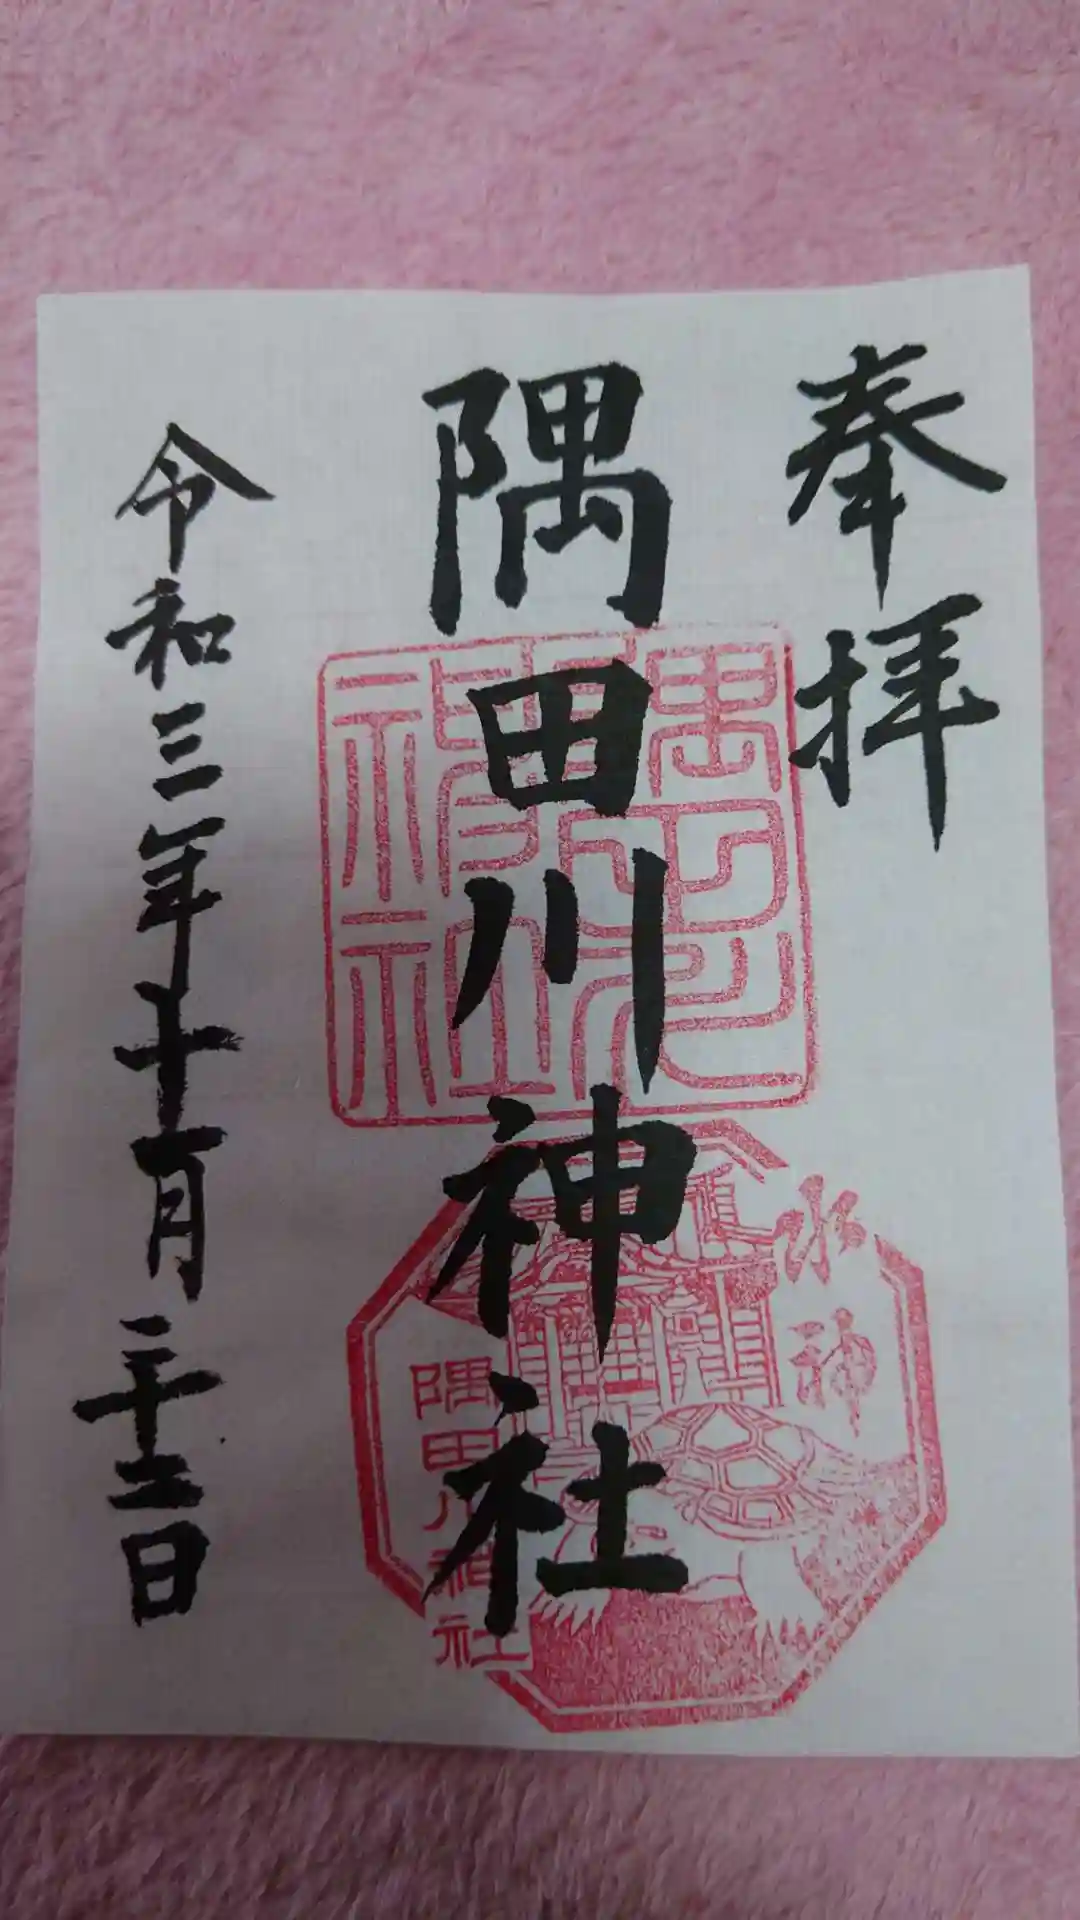 奉拝
隅田川神社
令和三年十一月二十二日
隅田川
神社
水神
隅田川神社